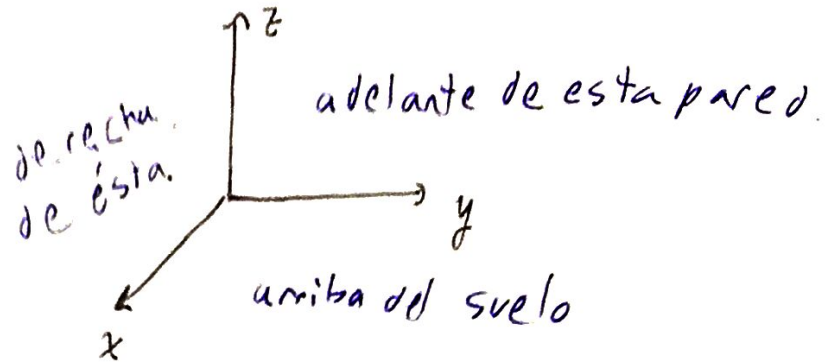 z
adelante de esta pared.
derecha
de ésta.
y
arriba del suelo
x